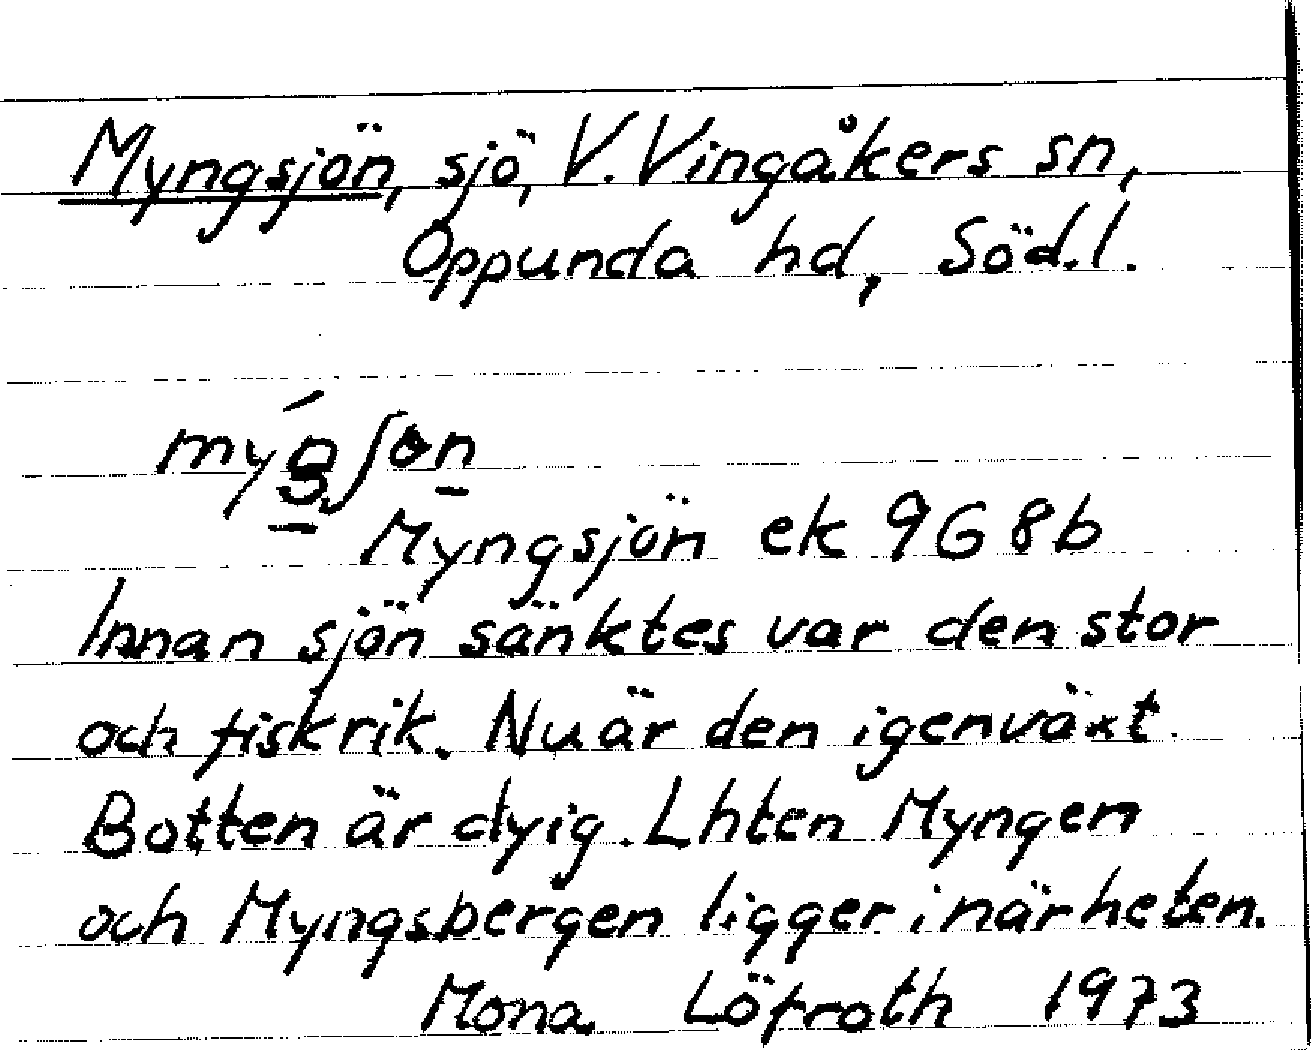 Myngsjön, sjö, V. Vingåkers sn,
Oppunda hd, Söd.l.
Myngsjön ek 9G 8b
Innan sjön sänktes var den stor
och fiskrik. Nu är den igenväxt.
Botten är dyig. Lhten Myngen
och Myngsbergen ligger i närheten.
Mona Löfroth 1973